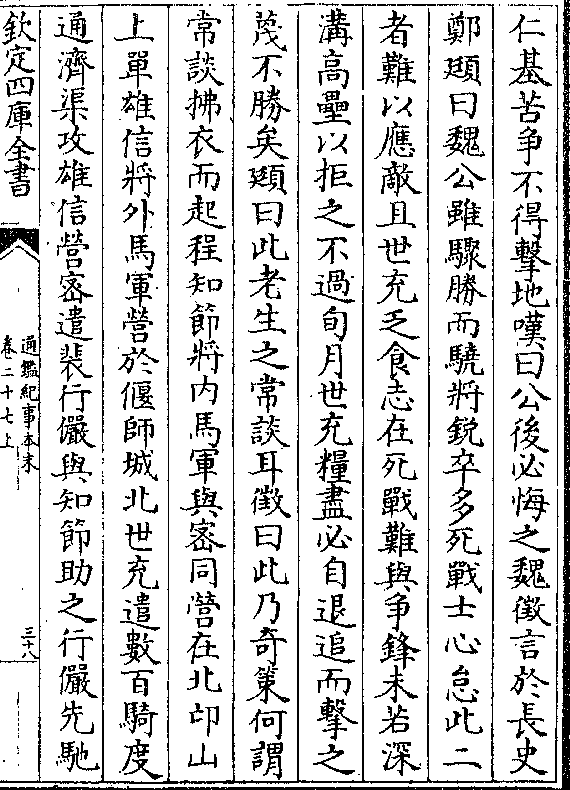 仁基苦争不得擊地嘆曰公後必悔之魏徵言於長史
鄭頲曰魏公雖驟勝而驍將銳卒多死戰士心怠此二
者難以應敵且世充乏食志在死戰難與争鋒未若深
溝高壘以拒之不過旬月世充糧盡必自退追而擊之
蔑不勝矣頲曰此老生之常談耳徵曰此乃奇策何謂
常談拂衣而起程知節將内馬軍與密同營在北邙山
上單雄信將外馬軍營於偃師城北世充遣數百騎度
通濟渠攻雄信營密遣裴行儼與知節助之行儼先馳
欽定四庫全書
通鑑紀事本末
卷二十七上
三十八